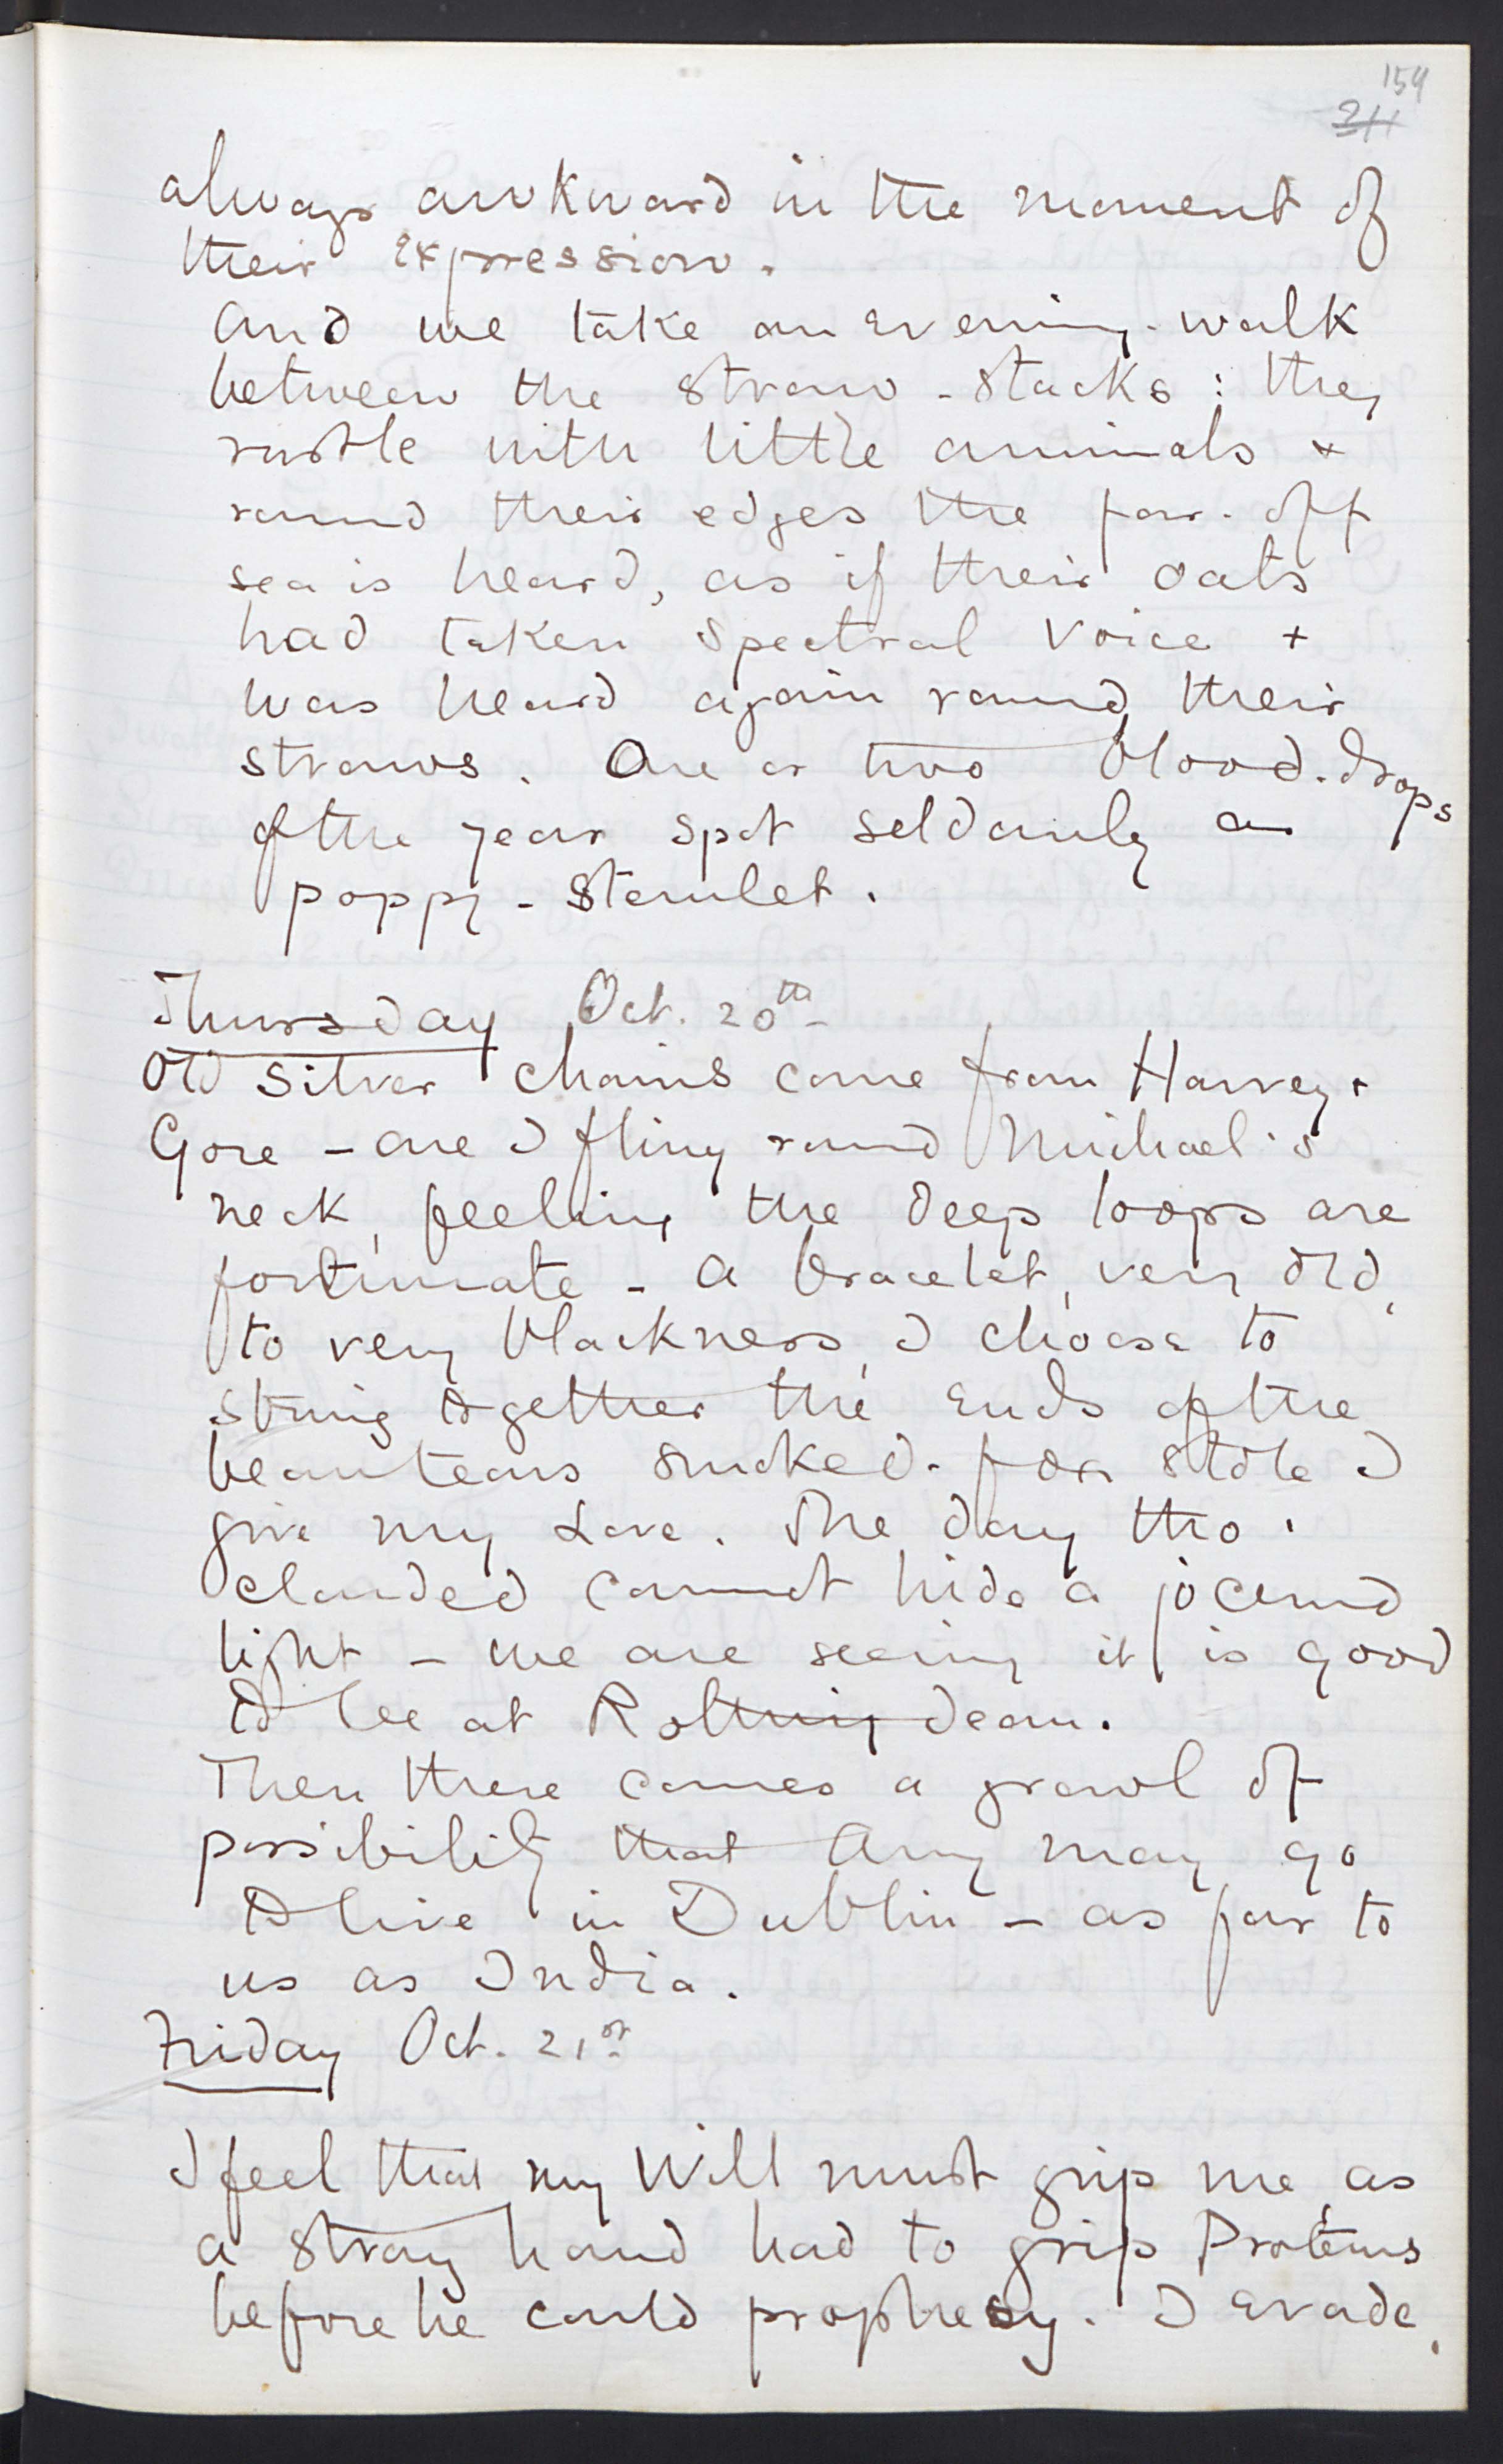 154
211
always awkward in the moment of
their expression.
And we take an evening-walk
between the straw-stacks: they
rustle with little animals +
round their edges the far-off
sea is heard, as if their oats
had taken spectral voice +
was heard again round their
straws. One or two blood-drops
of the year spot seldomly a
poppy-stemlet.
Thursday Oct. 20th
Old silver chains come from Harvey +
Gore – one I fling round Michael's
neck, feeling the deep loops are
fortunate – a bracelet, very old,
to very blackness, I choose to
string together the ends of the
beauteous smoked-fox stole I
give my Love. The day tho'
clouded cannot hide a jocund
light – we are seeing it is good
to be at Rottingdean.
Then there comes a growl of
possibility that Amy may go
to live in Dublin – as far to
us as India.
Friday Oct. 21st
I feel that my Will must grip me, as
a strong hand had to grip Proteus
before he could prophesy. I evade,